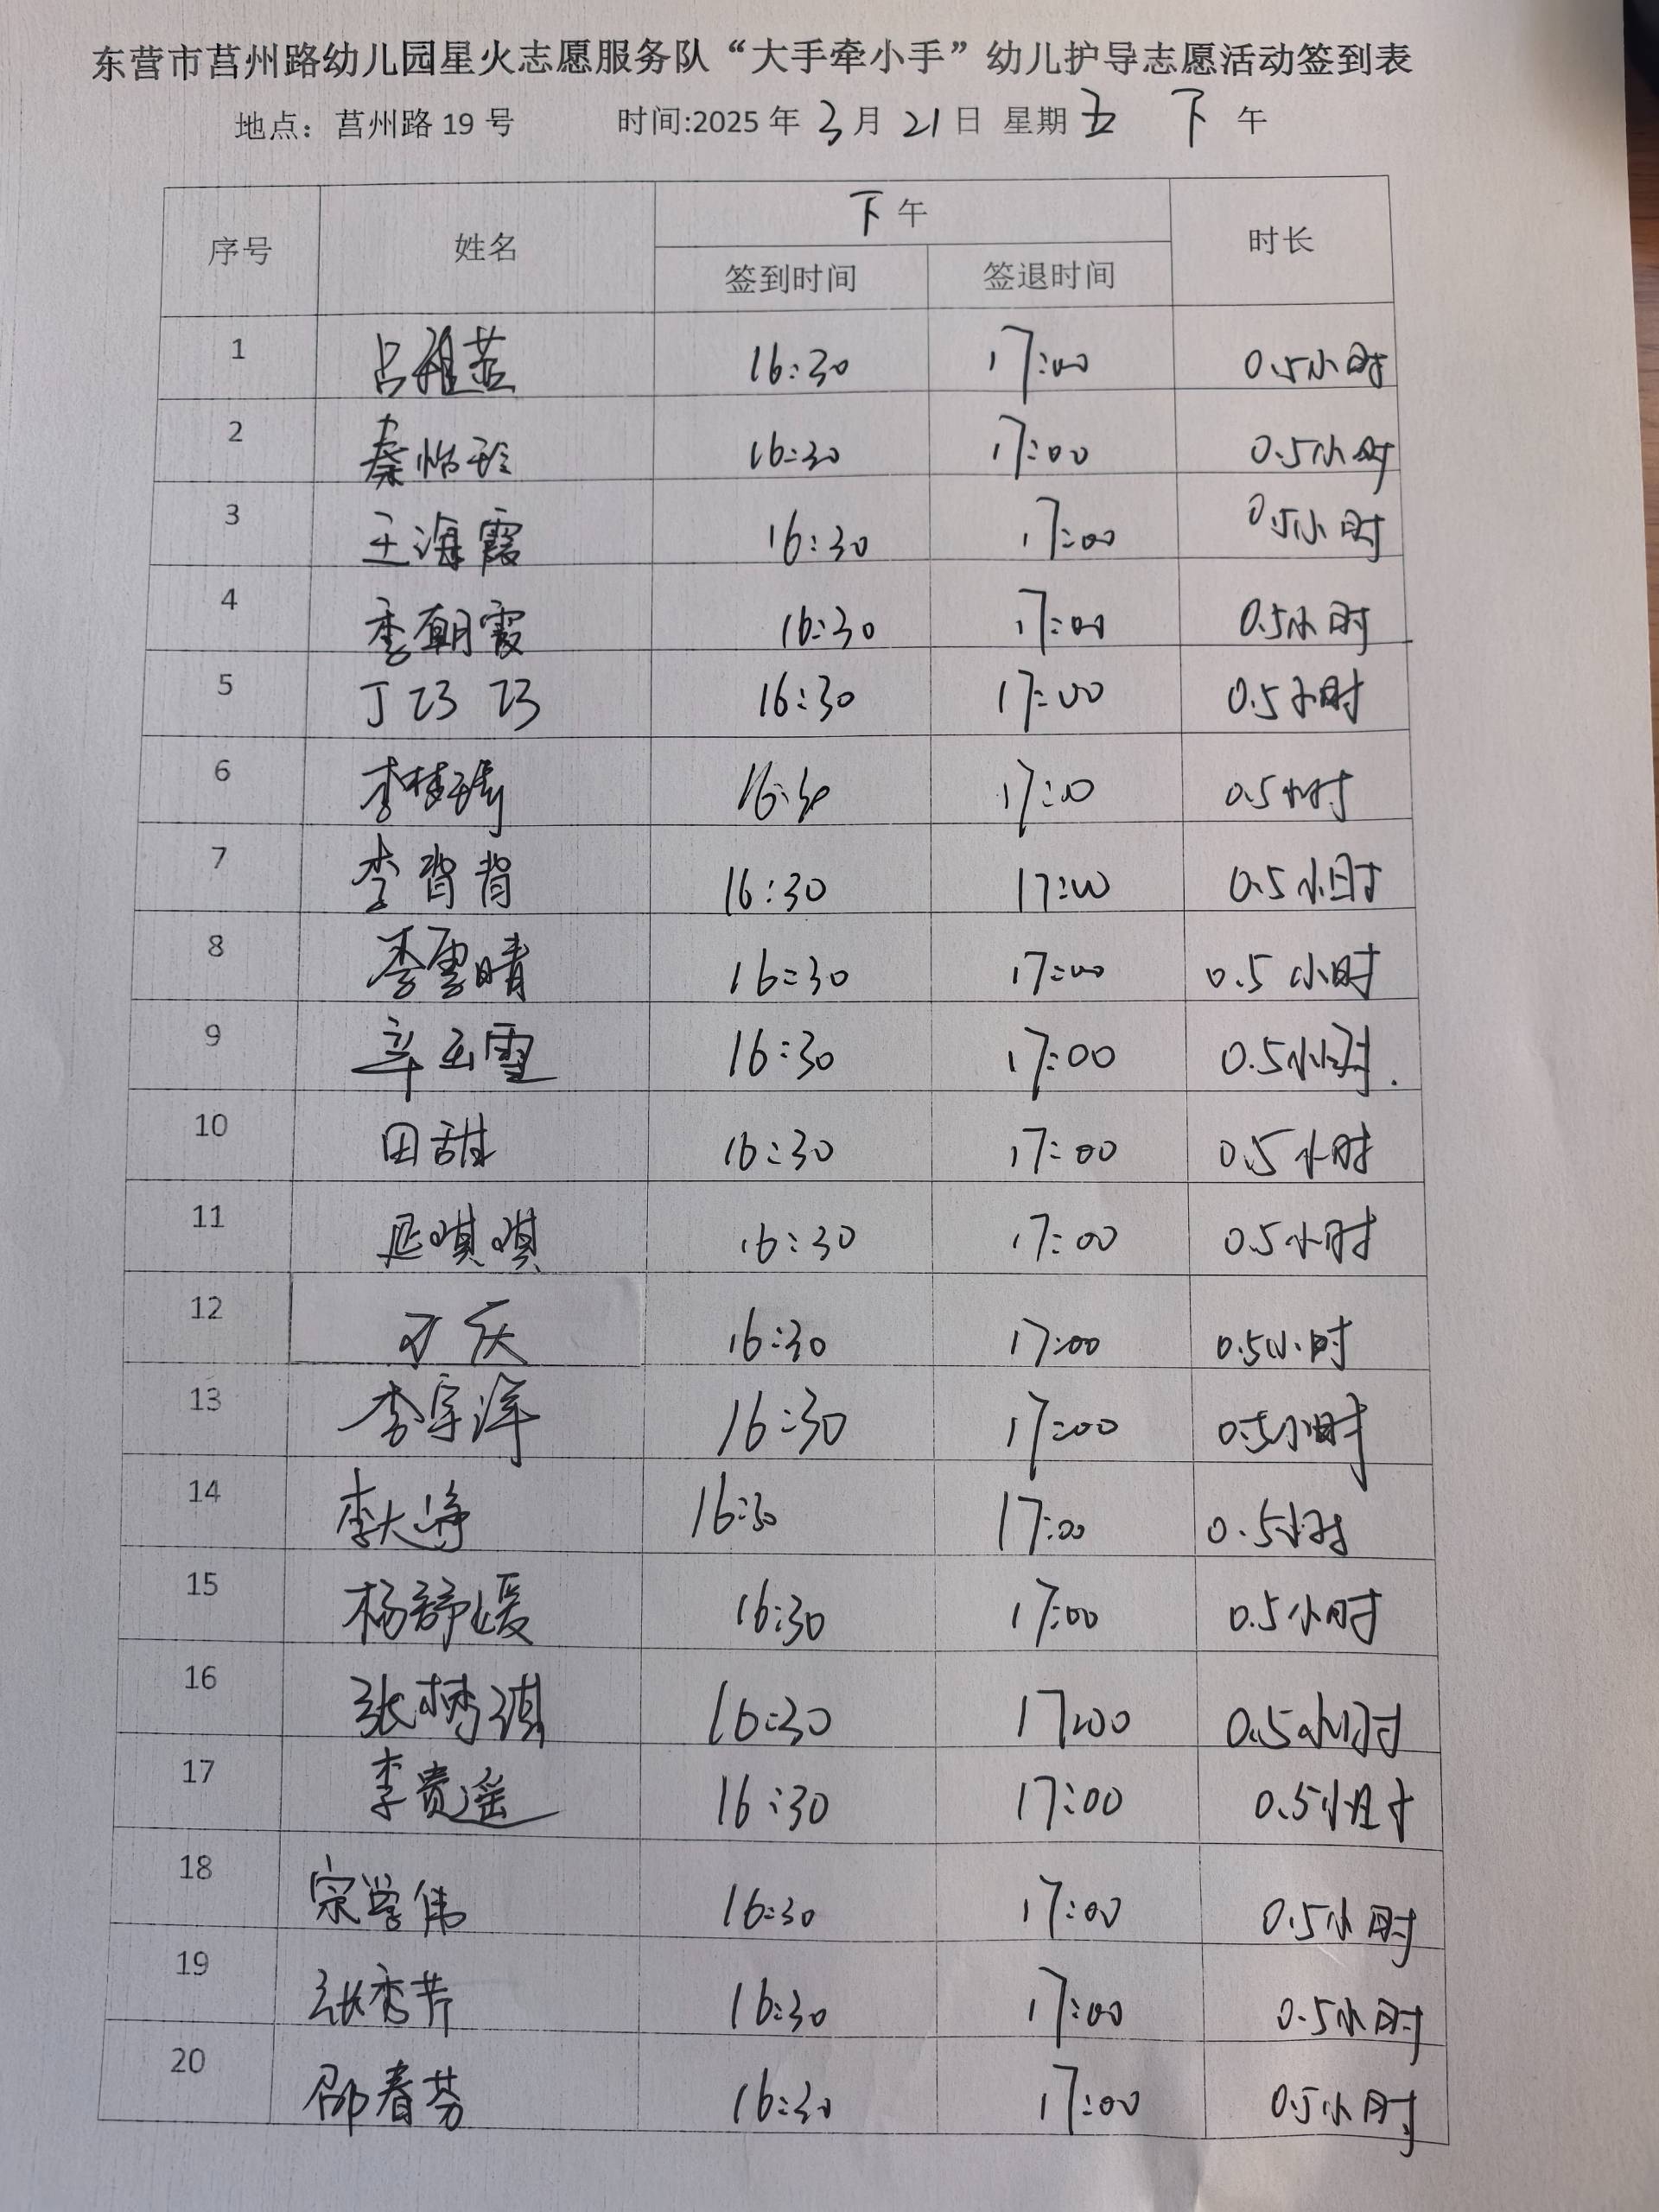 东营市莒州路幼儿园星火志愿服务队“大手牵小手”幼儿护导志愿活动签到表
地点：莒州路 19 号 时间:2025 年 3 月 21 日 星期 五 下 午
序号 姓名 下 午 时长
签到时间 签退时间
1 16:30 17:00 0.5小时
2 秦怡玲 16:30 17:00 0.5小时
3 王海霞 16:30 17:00 0.5小时
4 李朝霞 16:30 17:00 0.5小时
5 丁巧巧 16:30 17:00 0.5小时
6 16:30 17:00 0.5小时
7 李背背 16:30 17:00 0.5小时
8 李雪晴 16:30 17:00 0.5小时
9 辛玉雪 16:30 17:00 0.5小时.
10 田甜 16:30 17:00 0.5小时
11 延唭唭 16:30 17:00 0.5小时
12 16:30 17:00 0.5小时
13 李宗洋 16:30 17:00 0.5小时
14 李大海 16:30 17:00 0.5小时
15 杨舒媛 16:30 17:00 0.5小时
16 张梅琪 16:30 17:00 0.5小时
17 李贵遥 16:30 17:00 0.5小时
18 宗学伟 16:30 17:00 0.5小时
19 张秀芹 16:30 17:00 0.5小时
20 邵春芬 16:30 17:00 0.5小时